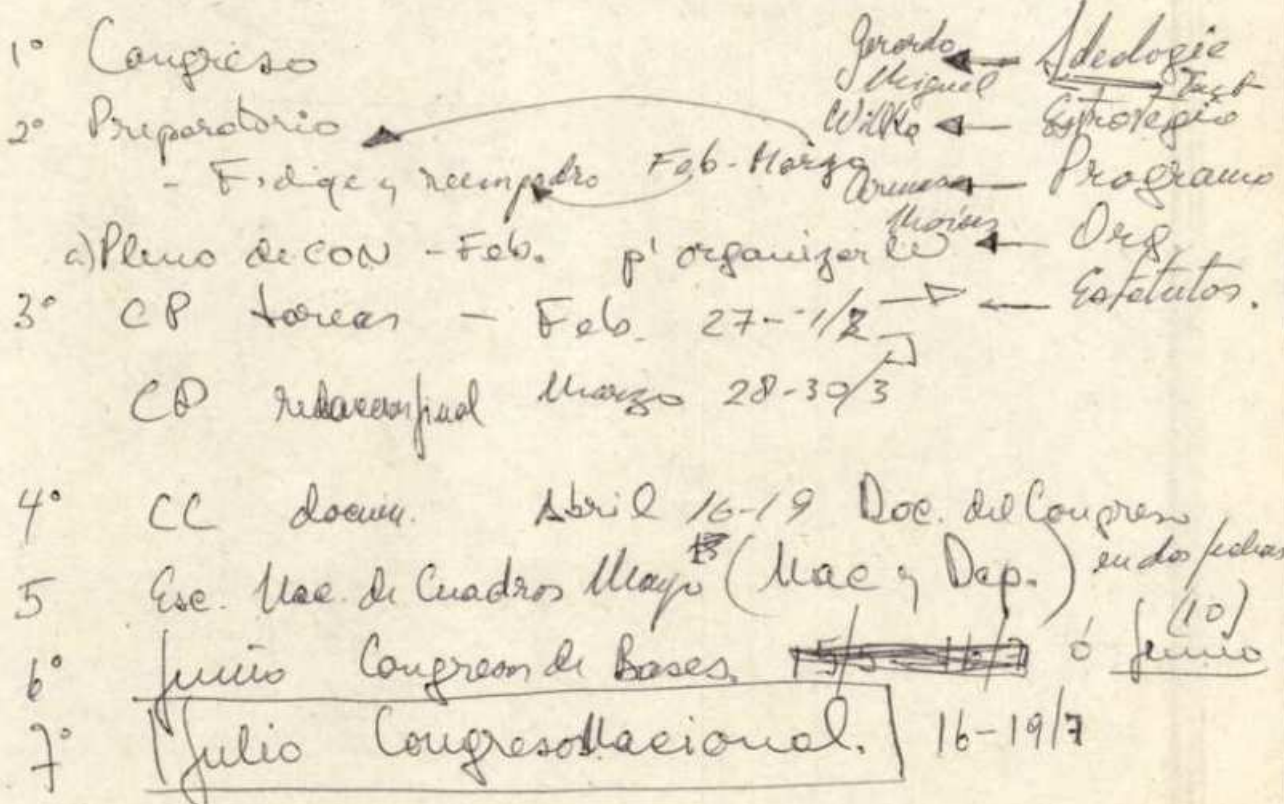 1° Congreso
2° Preparatorio
- F. dige y reempadro Feb-Marzo
a) Pleno de CON - Feb. p' organizar
3° CP tareas - Feb. 27-1/2
CP redaccion final Marzo 28-30/3
4° CC docum. Abril 16-19 Doc. del Congreso
5 Esc. Nac. de Cuadros Mayo (Nac y Dep.) en dos fechas
6° Junio Congreso de Bases. ó Junio (10)
7° Julio Congreso Nacional. 16-19/7
Gerardo Ideologia
Miguel
Willka Estrategia
Programa
Moises Org.
Estatutos.